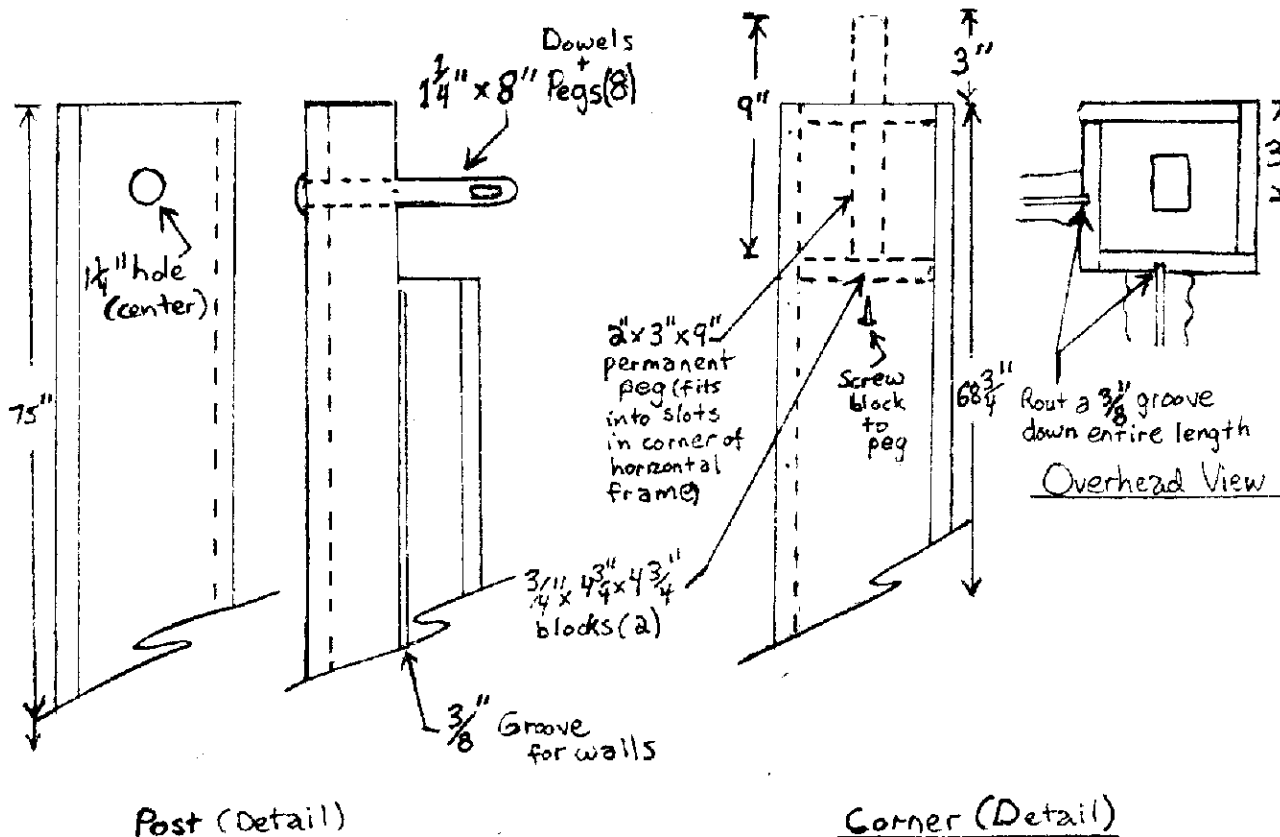 Dowels
+
1 1/4" x 8" Pegs(8)
1 1/4" hole
(center)
75"
3/8" Groove
for walls
Post (Detail)
9"
3"
2" x 3" x 9"
permanent
peg (fits
into slots
in corner of
horizontal
frame)
Screw
block
to
peg
68 3/4"
3/4" x 4 3/4" x 4 3/4"
blocks (2)
Corner (Detail)
Rout a 3/8" groove
down entire length
Overhead View